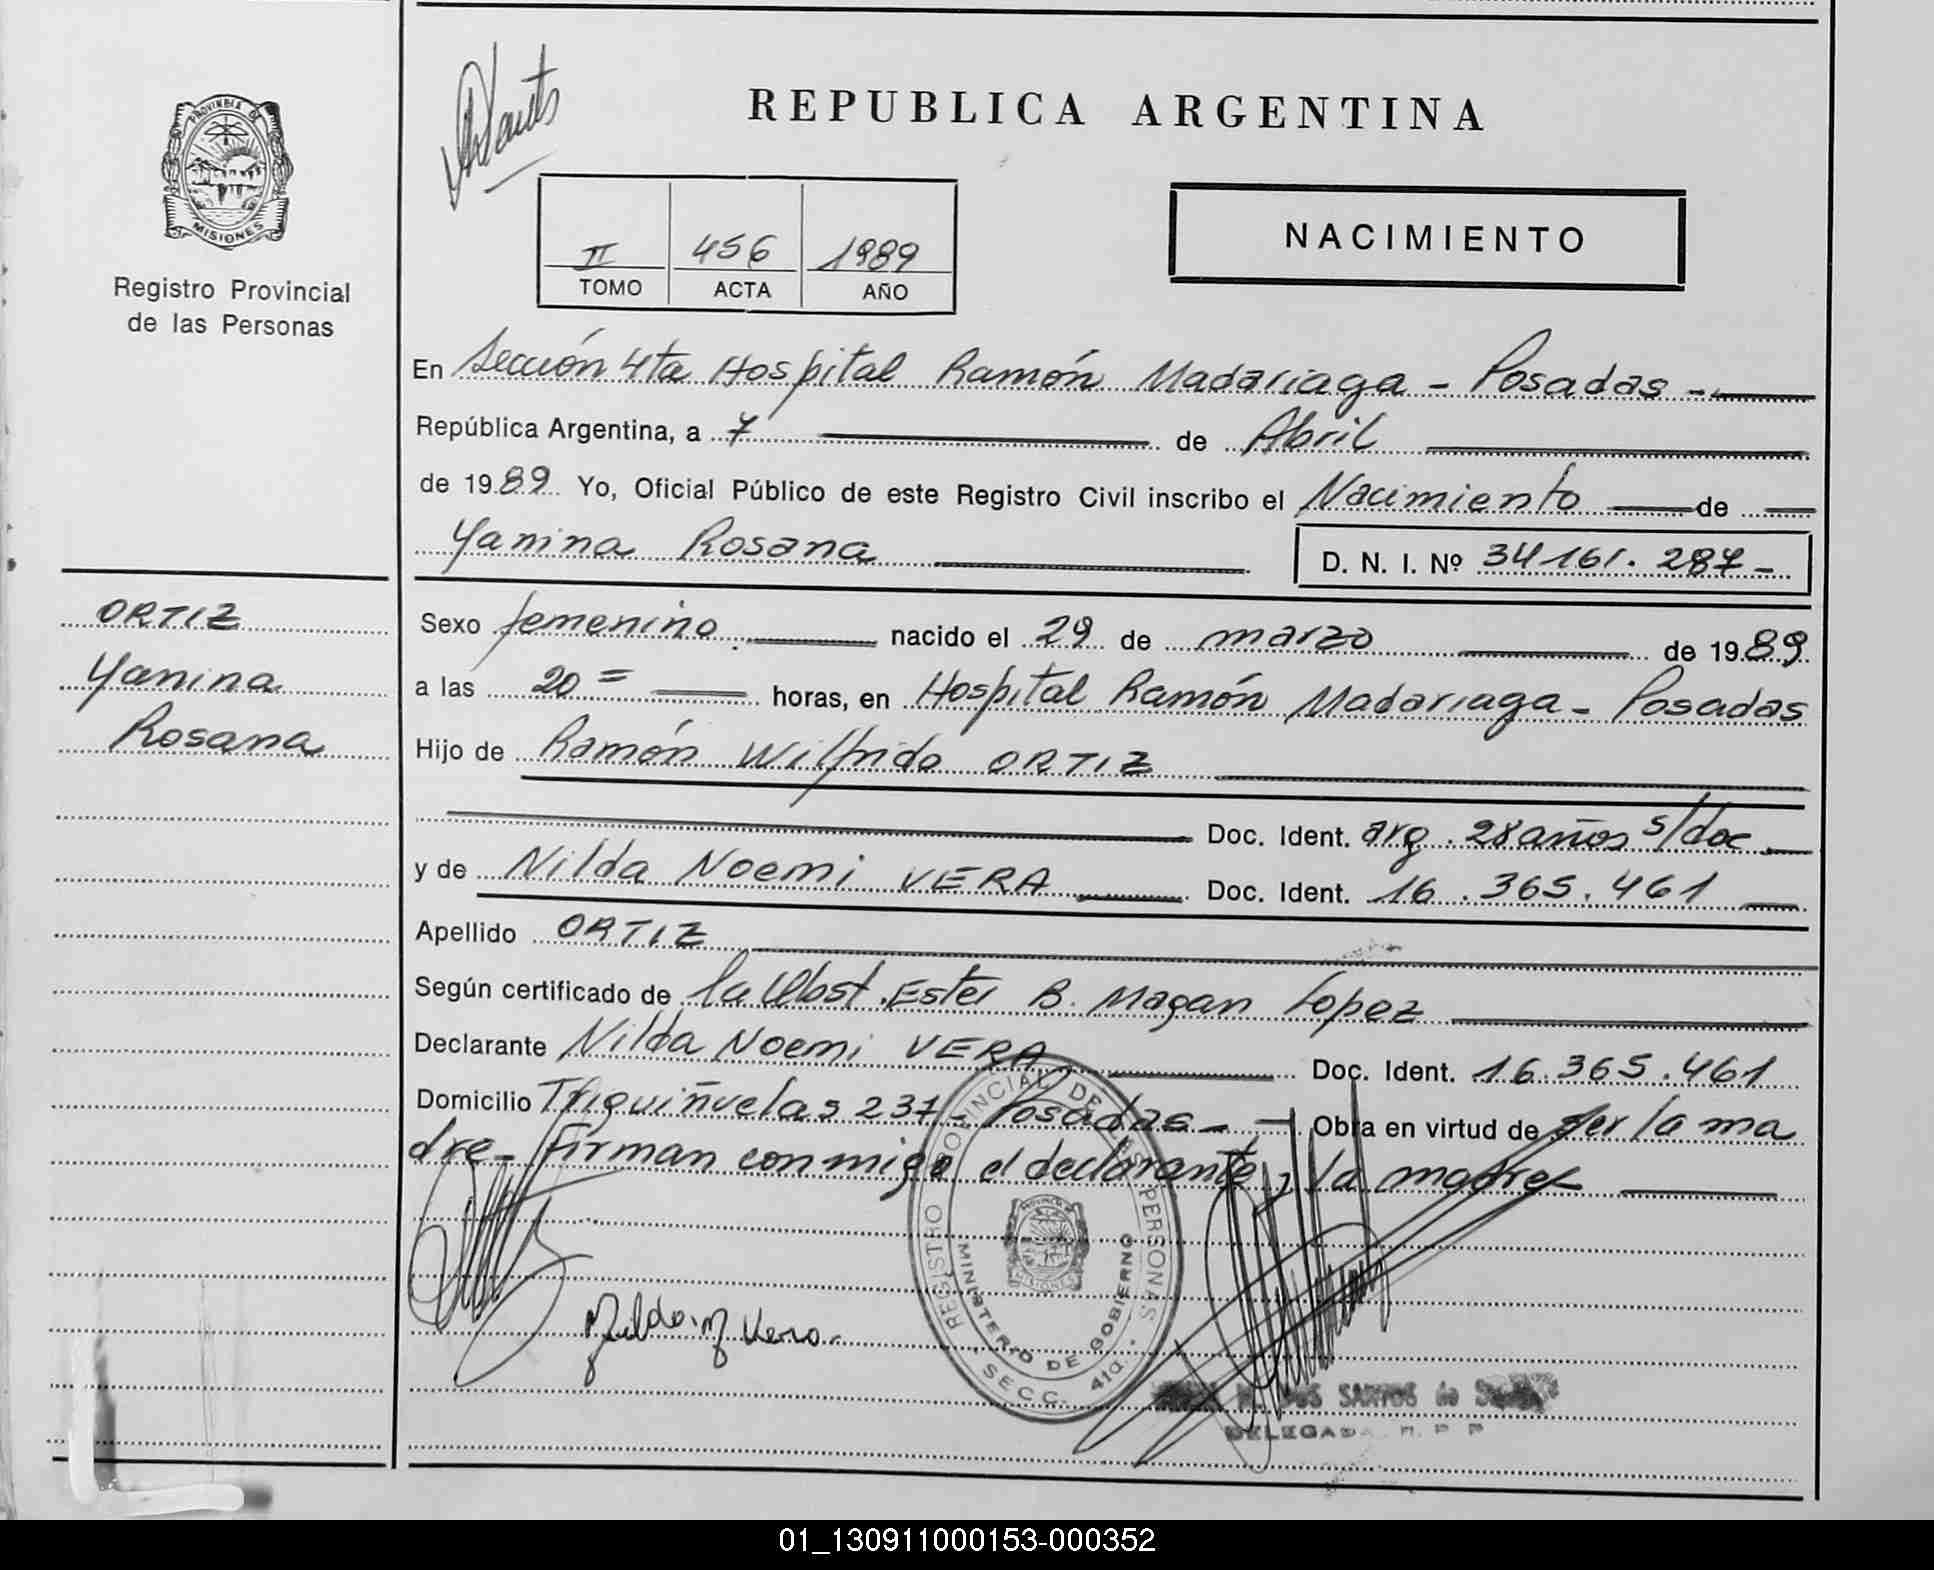 REPUBLICA ARGENTINA
PROVINCIA DE
MISIONES
Registro Provincial
de las Personas
II 456 1989
TOMO ACTA AÑO
NACIMIENTO
En Sección 4ta Hospital Ramón Madariaga - Posadas -
República Argentina, a 7 de Abril
de 1989 Yo, Oficial Público de este Registro Civil inscribo el Nacimiento de
Yanina Rosana D. N. I. Nº 34161.287-
ORTIZ
Yanina
Rosana
Sexo femenino nacido el 29 de marzo de 1989
a las 20= horas, en Hospital Ramón Madariaga - Posadas
Hijo de Ramón Wilfrido ORTIZ
Doc. Ident. arg. 28 años s/doc
y de Nilda Noemi VERA Doc. Ident. 16.365.461
Apellido ORTIZ
Según certificado de la Obst. Ester B. Magan Lopez
Declarante Nilda Noemi VERA Doc. Ident. 16.365.461
Domicilio 237- Posadas - Obra en virtud de ser la ma
dre- Firman conmigo el declarante y la madre
REGISTRO PROVINCIAL DE LAS PERSONAS
MINISTERIO DE GOBIERNO
SECC. 4ta.
PROVINCIA DE
MISIONES
Nilda N Vera
DOS SANTOS de
DELEGADA R. P. P.
01_130911000153-000352